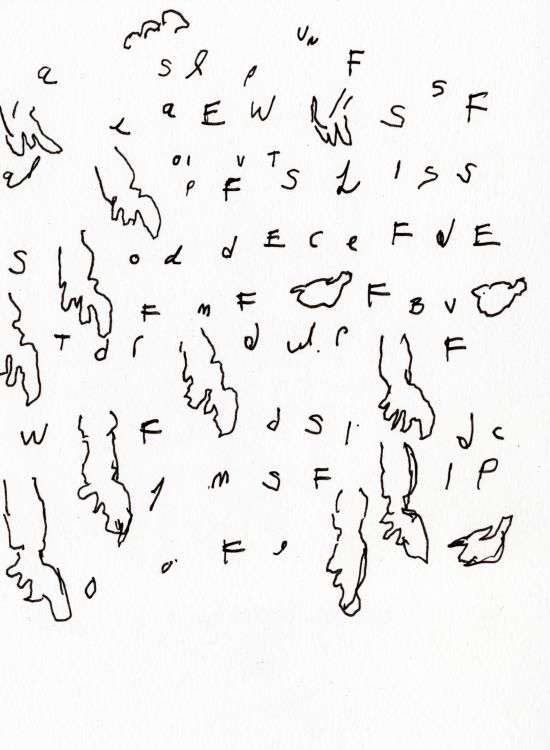 U N
a s l p F
e a E W S S F
a l O I V T
P F S L I S S
S o d d E C e F d E
F m F F B V
T d r d w . r F
W F d S I d c
1 m S F I P
o o F e